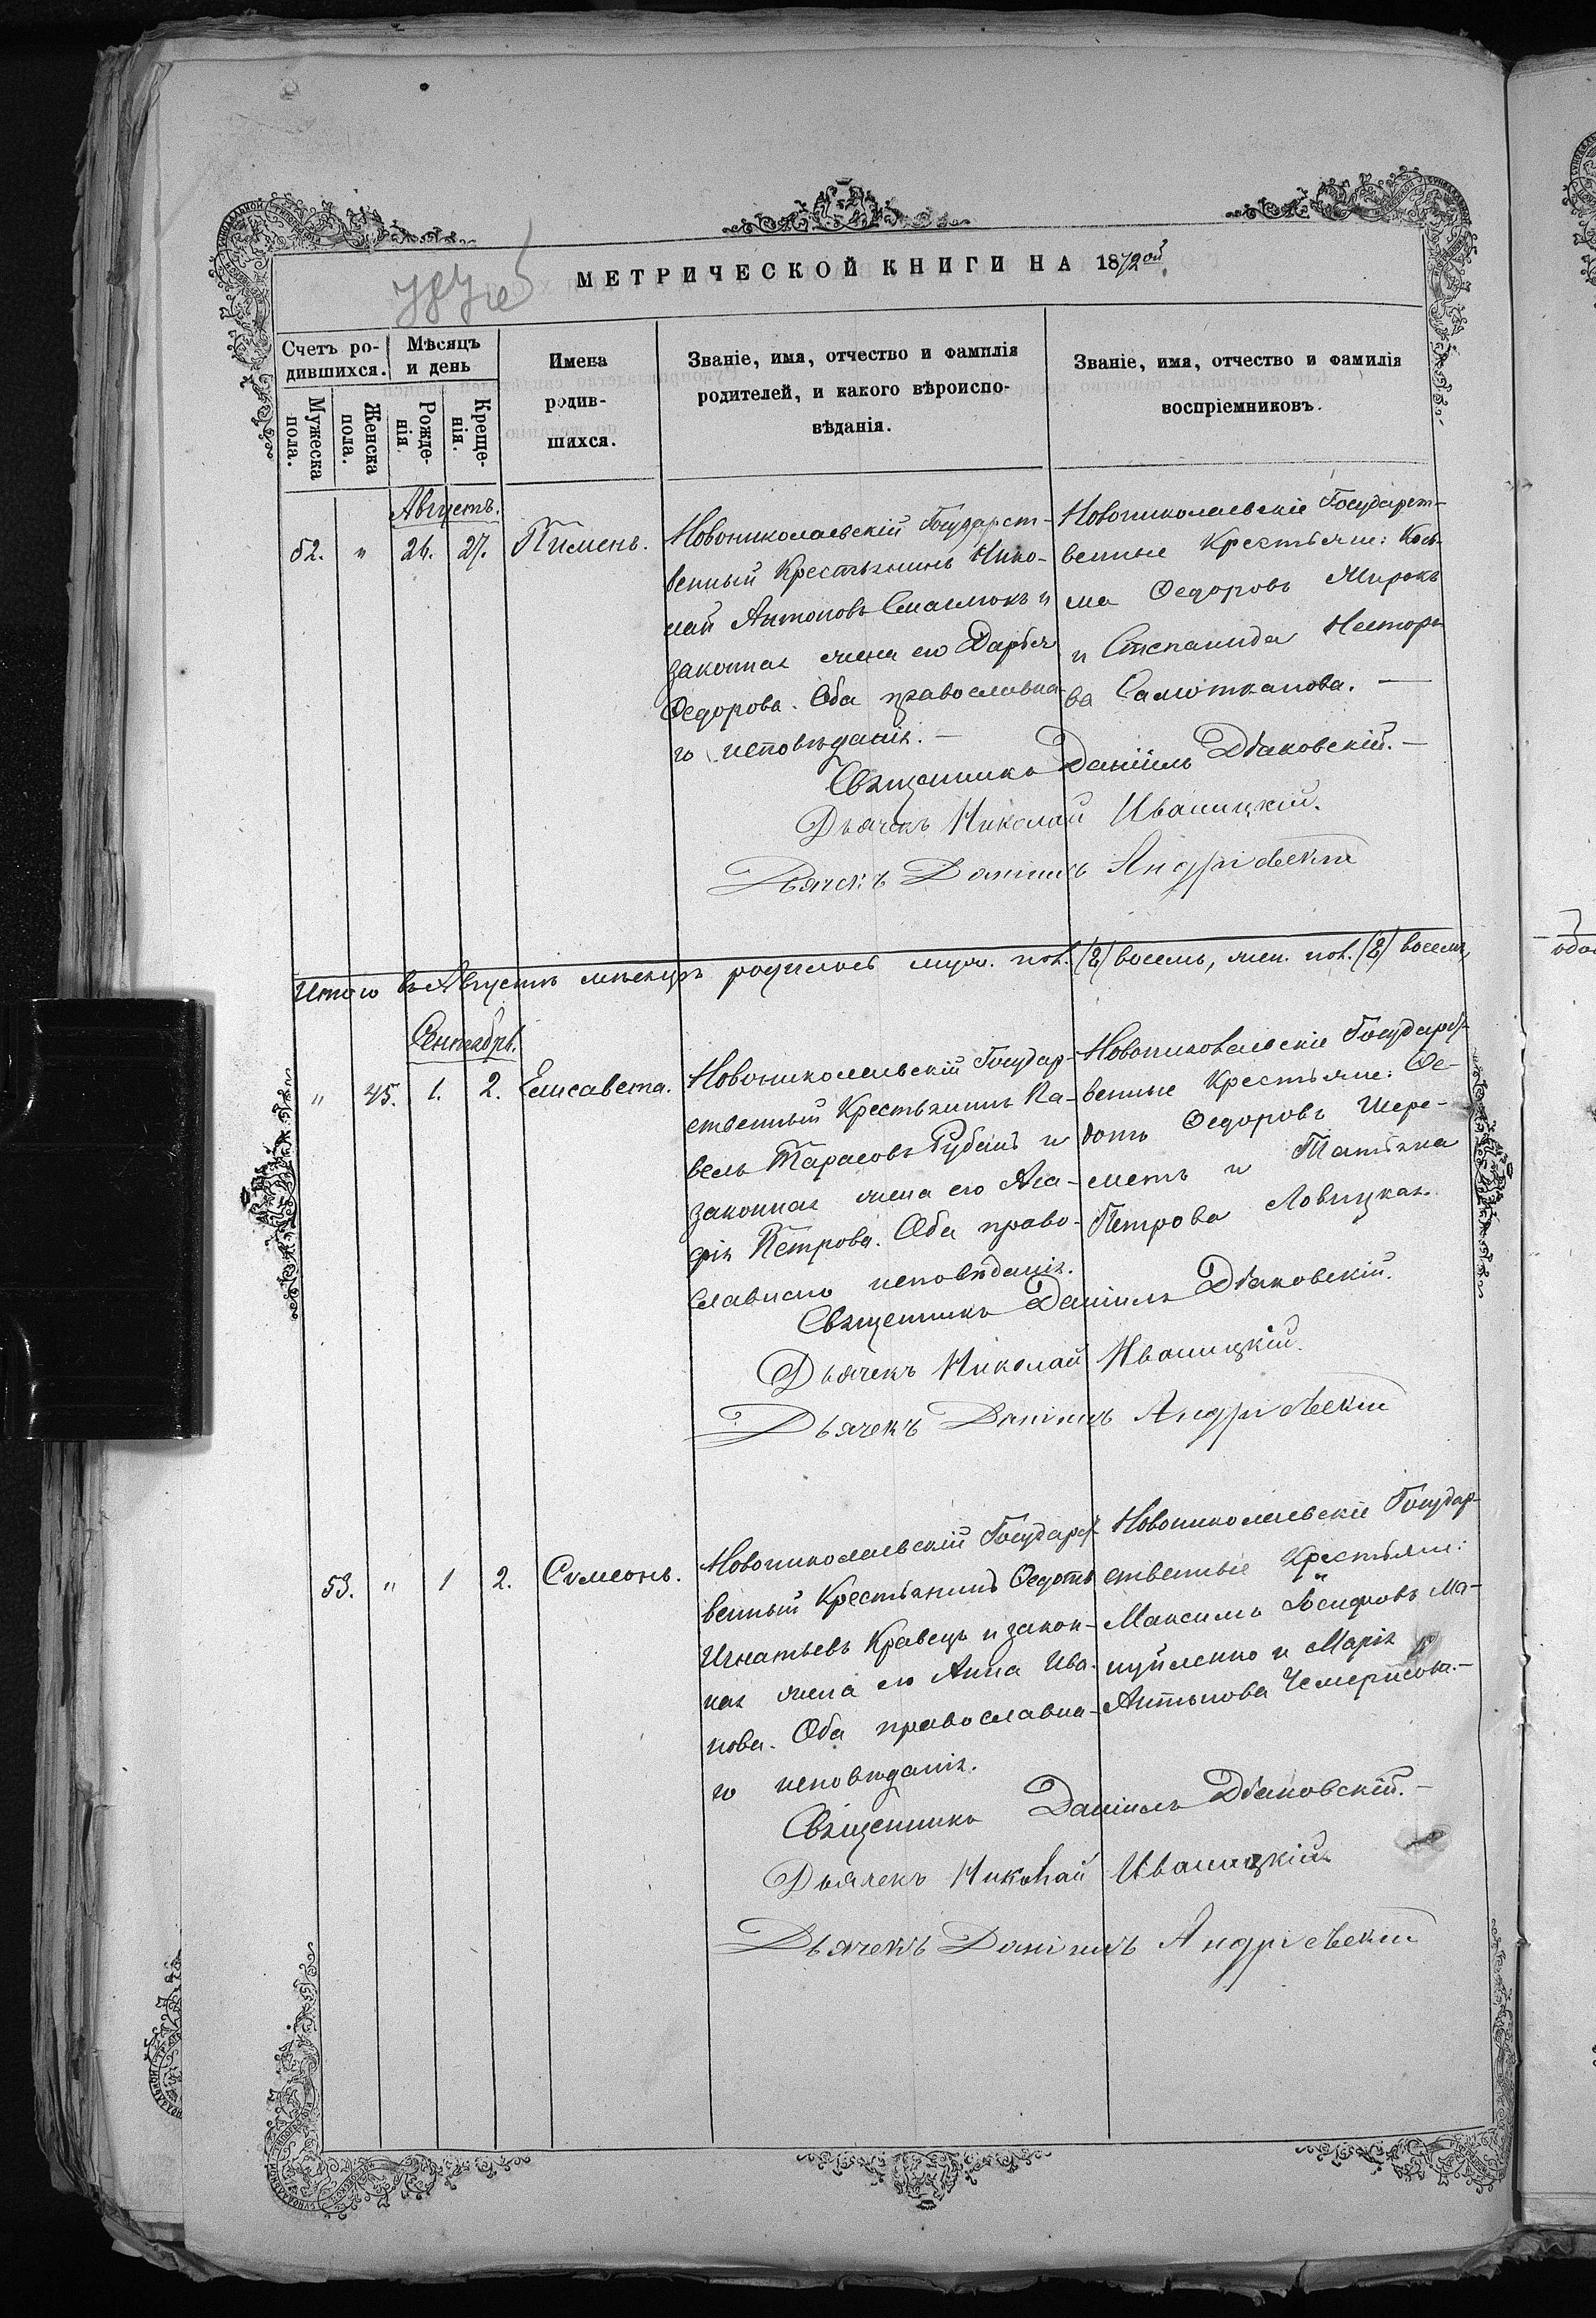 МЕТРИЧЕСКОЙ КНИГИ НА 1872ой
Счетъ ро-
дившихся.
Мѣсяцъ
и день
Мужеска
пола.
Женска
пола.
Рожде-
нія.
Креще-
нія.
Имена
родив-
шихся.
Званіе, имя, отчество и фамилія
родителей, и какого вѣроиспо-
вѣданія.
Званіе, имя, отчество и фамилія
воспріемниковъ.
Августъ.
52. " 26. 27. Пименъ.
Новониколаевскій Государст-
венный Крестьянинъ Нико-
лай Антоновъ и
законная жена его Дарья
Ѳедорова. Оба православна-
го исповѣданія. —
Новониколаевскіе Государст-
венные Крестьяне: Кось-
ма Ѳедоровъ Мирокъ
и Степанида Нестор-
ва Самотканова. —
Священникъ Даніилъ Дьяковскій. —
Дьячекъ Николай Иваницкій.
Дьячекъ Даніилъ Андріевскій
Итого въ Августѣ мѣсяцѣ родилось муж. пол. (8) восемь, жен. пол. (8) восемь,
Сентябрь.
" 45. 1. 2. Елисавета.
Новониколаевскій Государ-
ственный Крестьянинъ Па-
велъ Тарасовъ Губань и
законная жена его Ага-
фія Петрова. Оба право-
славнаго исповѣданія.
Новониколаевскіе Государст-
венные Крестьяне: Ѳе-
дотъ Ѳедоровъ Шере-
метъ и Татьяна
Петрова Ловицкая.
Священникъ Даніилъ Дьяковскій.
Дьячекъ Николай Иваницкій.
Дьячекъ Даніилъ Андріевскій
53. " 1 2. Сѵмеонъ.
Новониколаевскій Государст-
венный Крестьянинъ Ѳедотъ
Игнатьевъ Кравецъ и закон-
ная жена его Анна Ива-
нова. Оба православна-
го исповѣданія.
Новониколаевскіе Государ-
ственные Крестьяне:
Максимъ Іосифовъ Ма-
нуйленко и Марія
Антонова Чемерисова. —
Священникъ Даніилъ Дьяковскій. —
Дьячекъ Николай Иваницкій
Дьячекъ Даніилъ Андріевскій